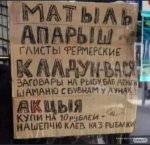 МАТЫЛЬ
АПАРЫШ
ГЛИСТЫ ФЕРМЕРСКИЕ
КАЛДУН-ВАРЯ
ЗАГОВАРЫ НА РЫБУ БАБ ДЕНЬГИ
ШАМАНЮ С БУБНАМ У ЛУНАК
АКЦЫЯ
КУПИ НА 10 РУБЛЕЙ -
НАШЕПЧЮ КЛЕВ НА 3 РЫБАЛКИ